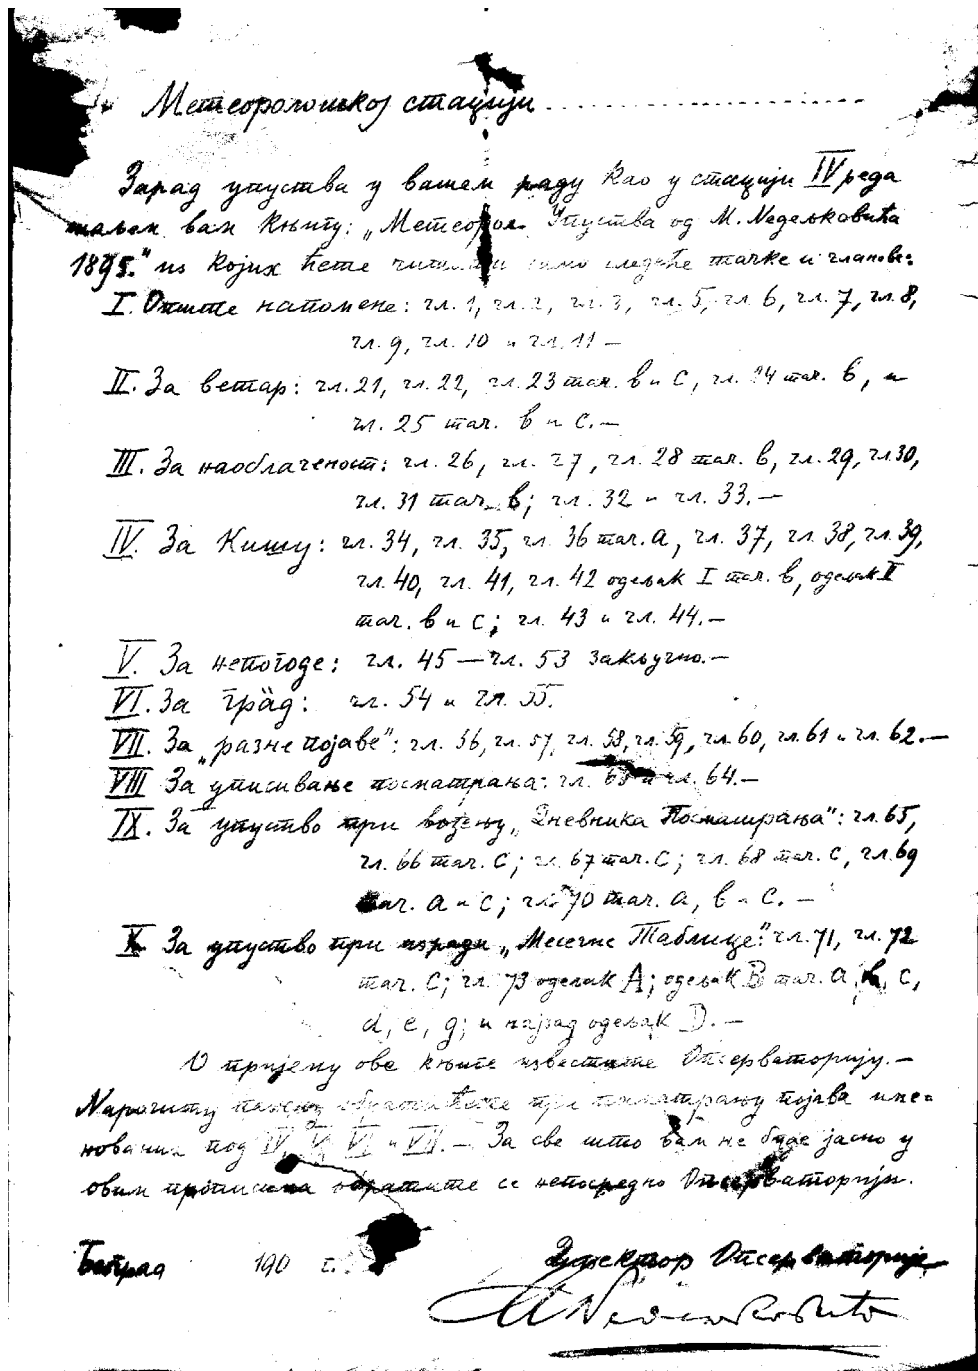 Метеоролошкој стацији ........................
Зарад упуства у вашем раду као у стацији IV реда
шаљем вам књигу: „Метеорол. Упуства од М. Недељковића
1895." из којих ћете читати само следеће тачке и чланове:
I. Опште напомене: чл. 1, чл. 2, чл. 3, чл. 5, чл. 6, чл. 7, чл. 8,
чл. 9, чл. 10 и чл. 11 —
II. За ветар: чл. 21, чл. 22, чл. 23 тач. в и с, чл. 24 тач. в, и
чл. 25 тач. в и с. —
III. За наоблаченост: чл. 26, чл. 27, чл. 28 тач. в, чл. 29, чл. 30,
чл. 31 тач. в; чл. 32 и чл. 33. —
IV. За кишу: чл. 34, чл. 35, чл. 36 тач. а, чл. 37, чл. 38, чл. 39,
чл. 40, чл. 41, чл. 42 одељак I тач. в, одељак II
тач. в и с; чл. 43 и чл. 44. —
V. За непогоде: чл. 45 — чл. 53 закључно. —
VI. За град: чл. 54 и чл. 55.
VII. За „разне појаве": чл. 56, чл. 57, чл. 58, чл. 59, чл. 60, чл. 61 и чл. 62. —
VIII За уписивање посматрања: чл. 63 и чл. 64. —
IX. За упуство при вођењу „Дневника Посматрања": чл. 65,
чл. 66 тач. с; чл. 67 тач. с; чл. 68 тач. с, чл. 69
тач. а и с; чл. 70 тач. а, в и с. —
X За упуство при изради „Месечне Таблице": чл. 71, чл. 72
тач. с; чл. 73 одељак A; одељак B тач. а, в, с,
d, e, g; и најзад одељак D. —
О пријему ове књиге известите Опсерваторију. —
Нарочиту пажњу обратићете при посматрању појава име-
нованих под IV, V, VI и VII. — За све што вам не буде јасно у
овим прописима обратите се непосредно Опсерваторији.
Београд 190 г.
Директор Опсерваторије
М Недељковић